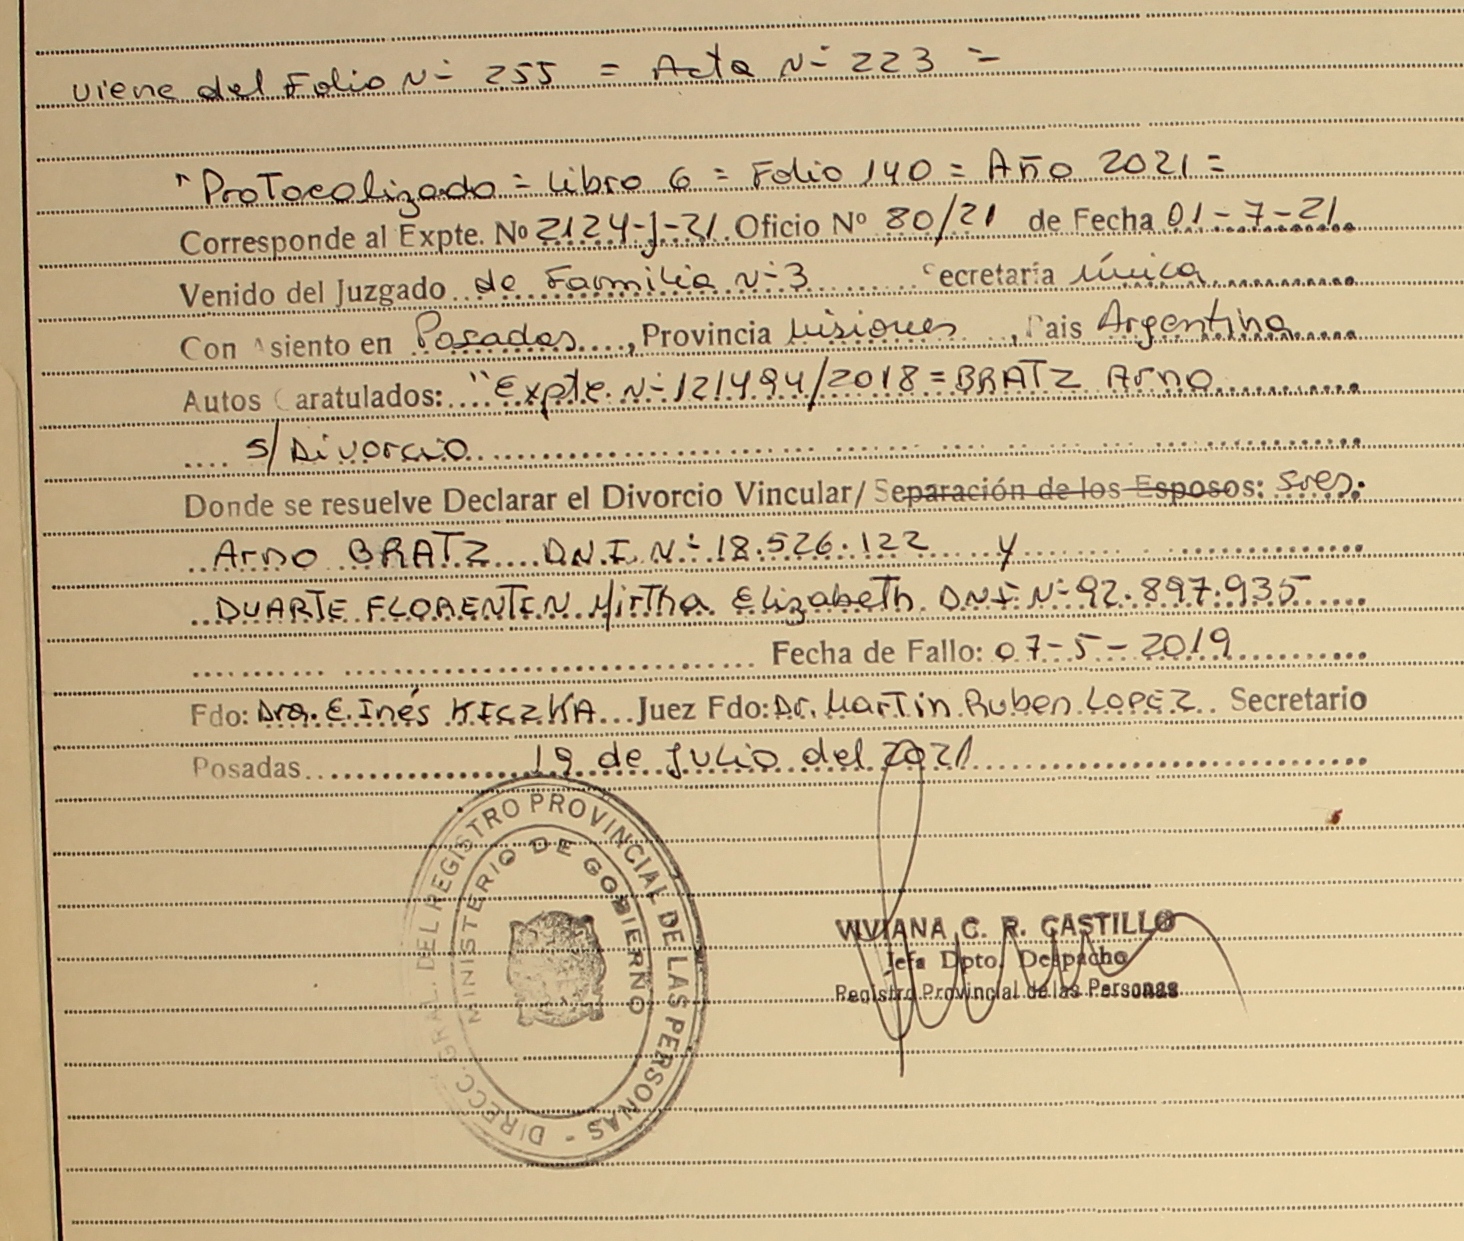 viene del Folio Nº 255 = Acta Nº 223 =
"Protocolizado = Libro 6 = Folio 140 = Año 2021 =
Corresponde al Expte. Nº 2124-J-21. Oficio Nº 80/21 de Fecha 01-7-21.
Venido del Juzgado de Familia Nº 3 ecretaría única
Con siento en Posadas, Provincia Misiones, Pais Argentina
Autos aratulados: "Expte. Nº 121494/2018 = BRATZ Arno
s/ Divorcio
Donde se resuelve Declarar el Divorcio Vincular/ Separación de los Esposos: Sres.
Arno BRATZ D.N.I. Nº 18.526.122 y
DUARTE FLORENTIN Mirtha Elizabeth DNI Nº 92.897.935
Fecha de Fallo: 07-5-2019
Fdo: Dra. E. Inés KICZKA Juez Fdo: Dr. Martin Ruben LOPEZ. Secretario
Posadas 19 de Julio del 2021
DIRECC. GRAL. DEL REGISTRO PROVINCIAL DE LAS PERSONAS -
MINISTERIO DE GOBIERNO
VIVIANA C. R. CASTILLO
Jefa Dpto. Despacho
Registro Provincial de las Personas